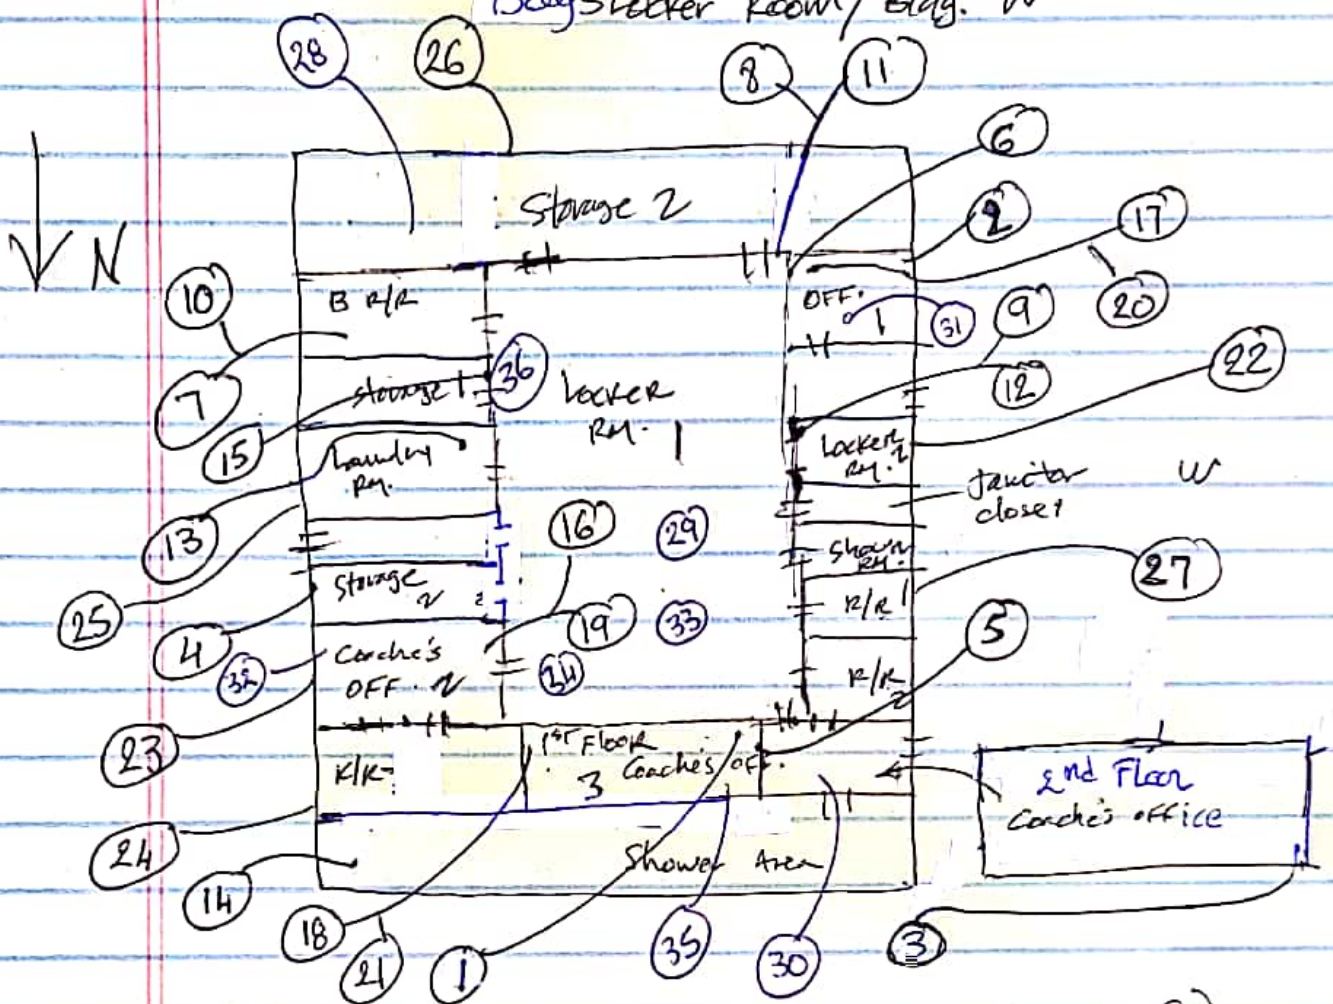 Boys Locker Room / Bldg. W
28
26
8
11
6
2
17
20
Storage 2
N
10
B R/R
OFF.
1
31
9
12
22
7
15
Storage 1
36
Locker
RM. 1
Locker
RM. 2
Laundry
RM.
Janitor
closet
W
13
25
16
29
Shower
RM.
27
Storage
2
R/R 1
4
19
33
5
32
Coache's
OFF. 2
34
R/R
2
23
R/R
1ST Floor
3 Coache's OFF.
2nd Floor
Coache's office
24
14
Shower Area
18
21
1
35
30
3